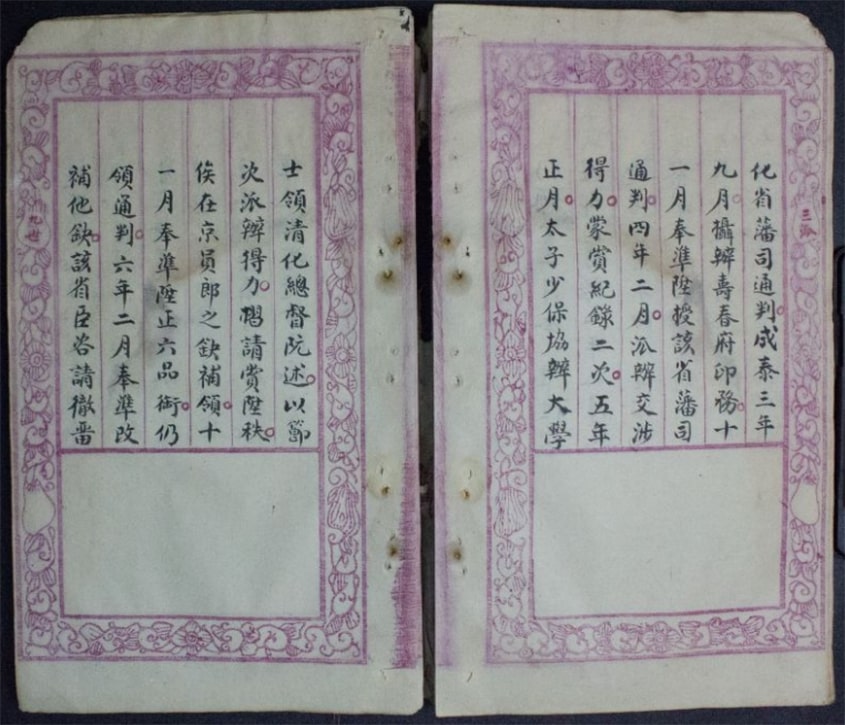 三派
化省藩司通判成泰三年
九月攝辦壽春府印務十
一月奉準陞授該省藩司
通判四年二月派辦交涉
得力蒙賞紀錄二次五年
正月太子少保協辦大學
士領清化總督阮述以節
次派辦得力請賞陞秩
俟在京員郎之缺補領十
一月奉準陞正六品銜仍
領通判六年二月奉準改
補他缺該省臣咨請徹畨
九世